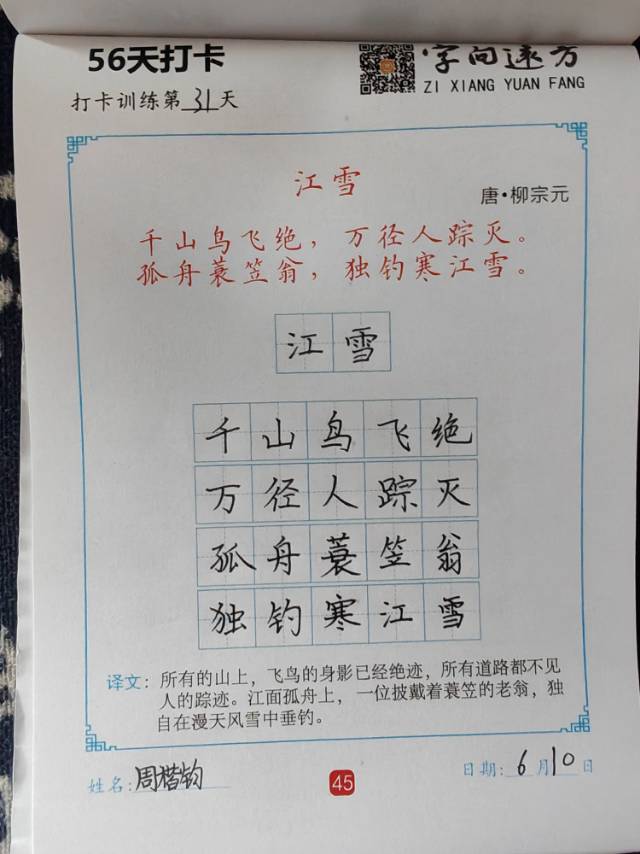 56天打卡
字向远方
ZI XIANG YUAN FANG
打卡训练第31天
江雪
唐·柳宗元
千山鸟飞绝，万径人踪灭。
孤舟蓑笠翁，独钓寒江雪。
江雪
千山鸟飞绝
万径人踪灭
孤舟蓑笠翁
独钓寒江雪
译文：所有的山上，飞鸟的身影已经绝迹，所有道路都不见
人的踪迹。江面孤舟上，一位披戴着蓑笠的老翁，独
自在漫天风雪中垂钓。
姓名：周楷钧
45
日期：6月10日